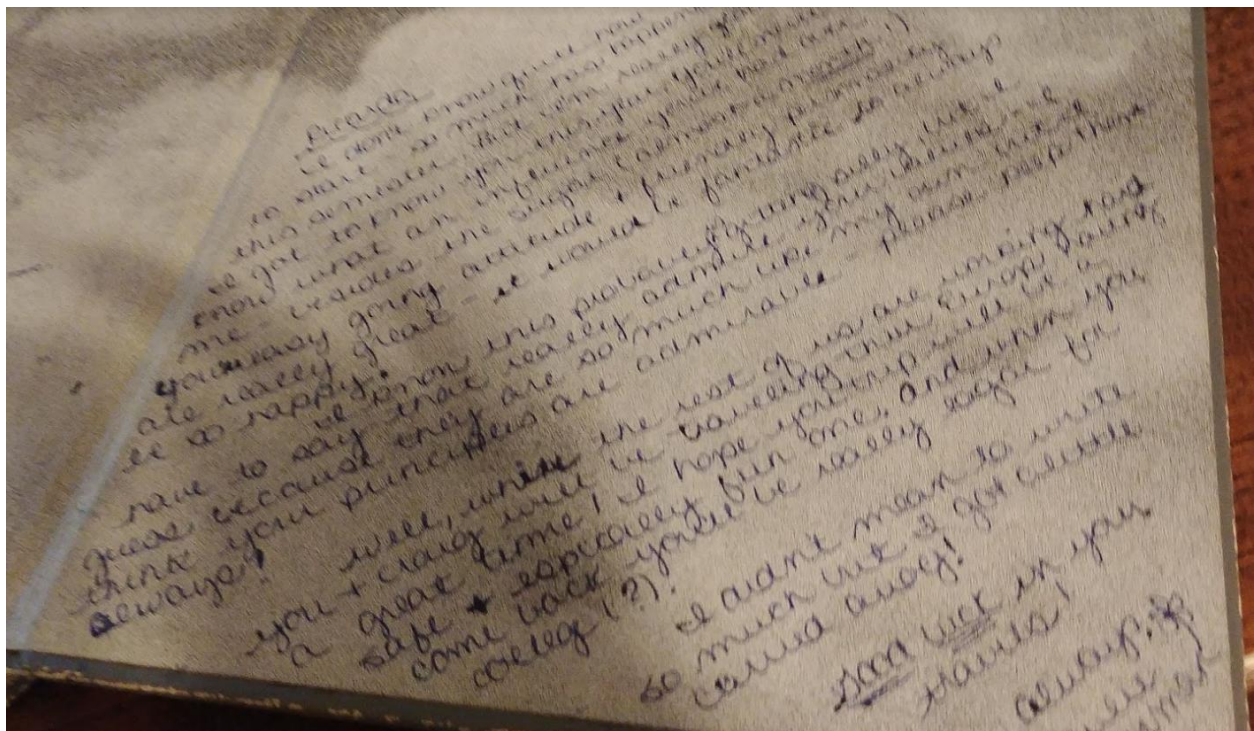 Ricardo,
I don't know quite how
to start so much has happened
this semester. But I'm really glad
I got to know you this year. You'll never
know what an influence you've had on
me - besides the sugar (almost a month!)
your easy going attitude & friendly personality
are really great - it would be fantastic to always
be so happy!
I know this probably wrong all
have to say that I really admire your ideals. I
guess because they are so much like my own but I
think your principles are admirable - please keep them
always!
Well, while the rest of us are working hard
you + Craig will be traveling thru Europe having
a great time, I hope your trip will be a
safe & especially fun one, and when you
come back you'll be really eager for
colleg (?).
I didn't mean to write
so much but I got a little
carried away!
Good luck in your
travels!
always,